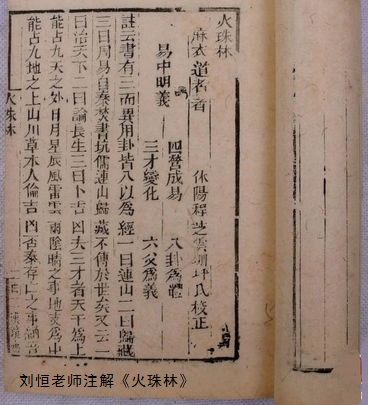 火珠林
麻衣道者著 休陽程芝雲瑚坪氏校正
易中明義
四營成易 八卦為體
三才變化 六爻為義
註云書有三而異用卦皆八以為經一曰連山二曰歸藏
三曰周易自秦焚書坑儒連山歸藏不傳於世矣又云一
曰治天下二曰論長生三曰卜吉凶夫三才者天為上
能占九天之外日月星辰風雷雲雨陰晴之事地支為中
能占九地之上山川草木人倫吉凶否泰存亡之事納音
火珠林
刘恒老师注解《火珠林》